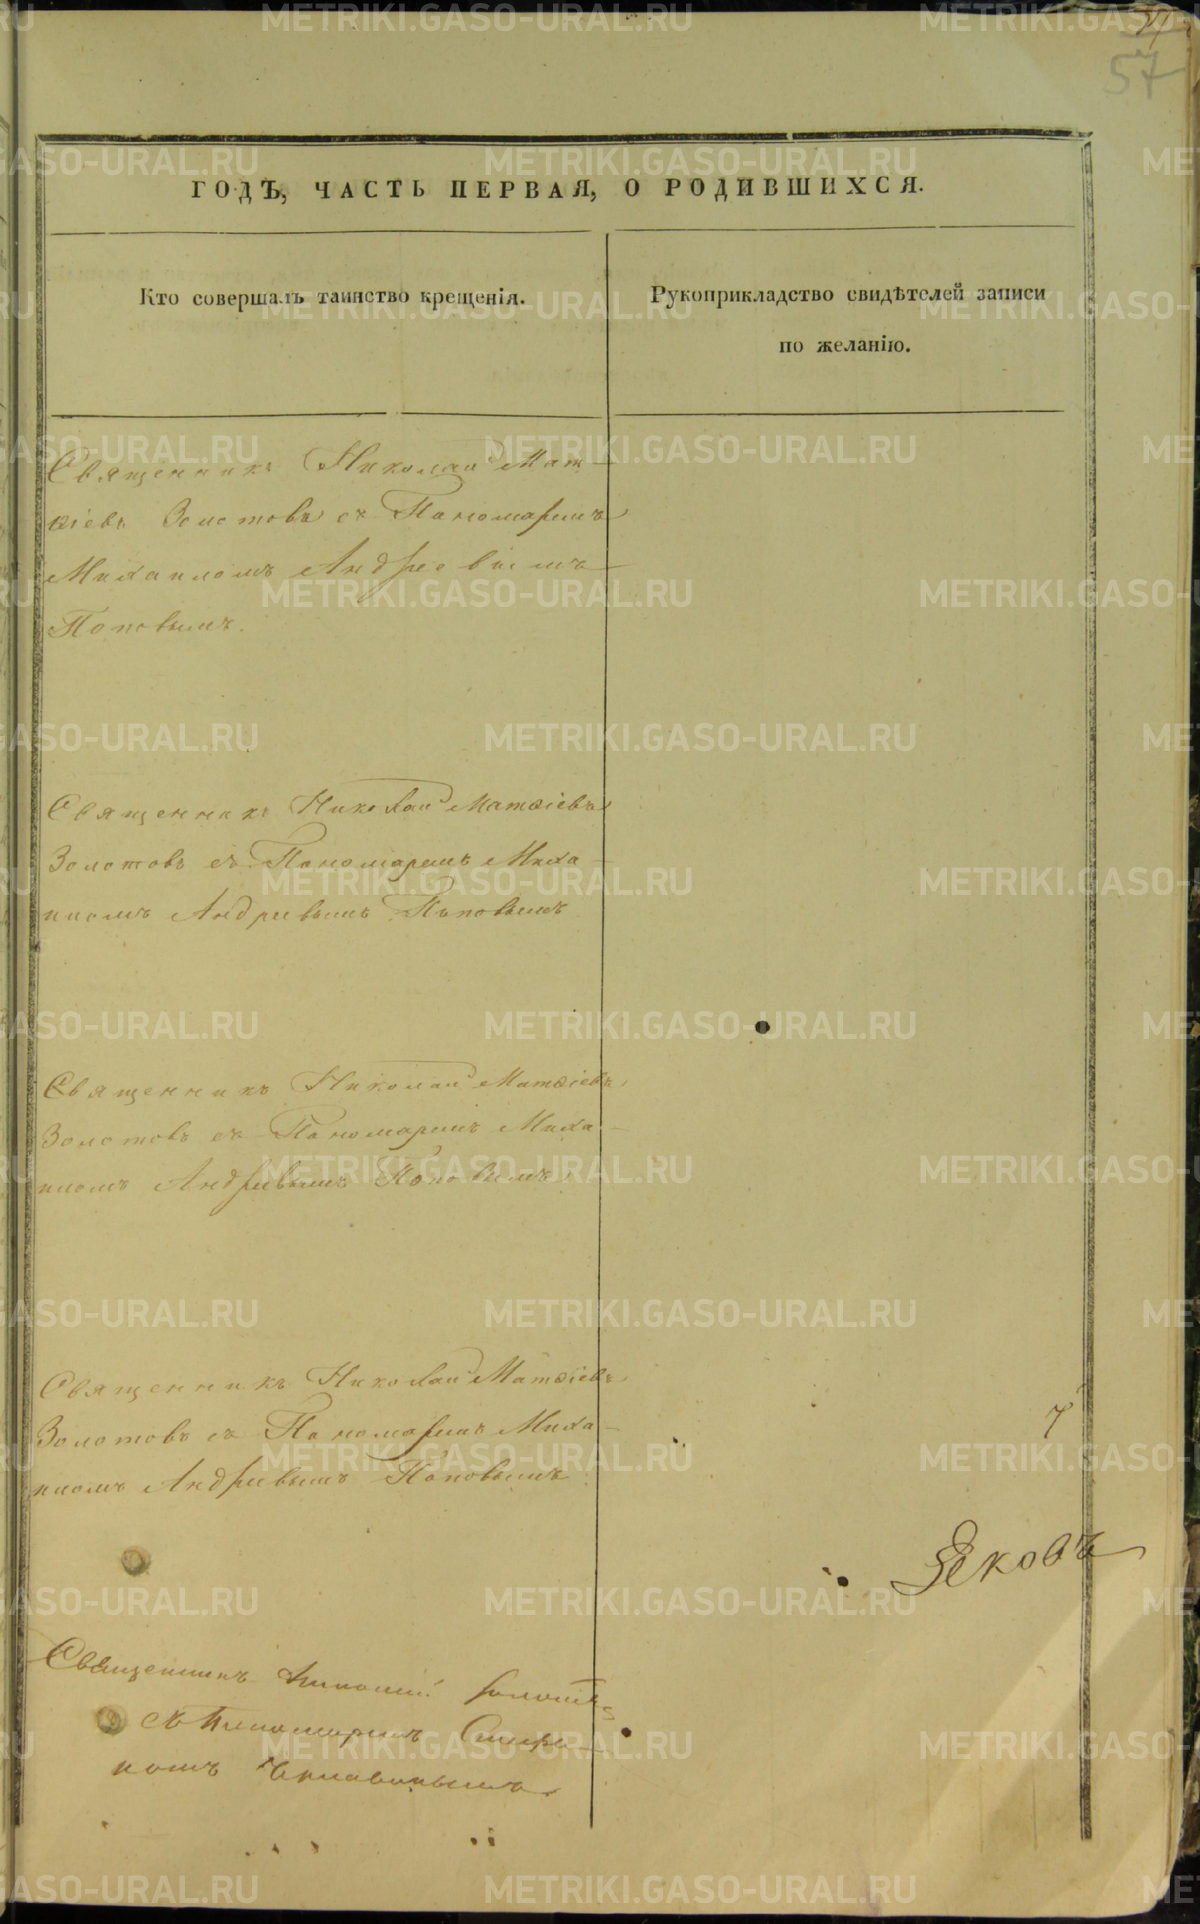 57
ГОДЪ, ЧАСТЬ ПЕРВАЯ, О РОДИВШИХСЯ.
Кто совершалъ таинство крещенія.
Рукоприкладство свидѣтелей записи
по желанію.
Священникъ Николай Мат-
ѳіевъ Золотовъ съ Пономаремъ
Михаиломъ Андреевымъ
Поповымъ.
Священникъ Николай Матѳіевъ
Золотовъ съ Пономаремъ Миха-
иломъ Андреевымъ Поповымъ
Священникъ Николай Матѳіевъ
Золотовъ съ Пономаремъ Миха-
иломъ Андреевымъ Поповымъ
Священникъ Николай Матѳіевъ
Золотовъ съ Пономаремъ Миха-
иломъ Андреевымъ Поповымъ
Священникъ Николай Золотовъ
съ Пономаремъ
METRIKI.GASO-URAL.RU